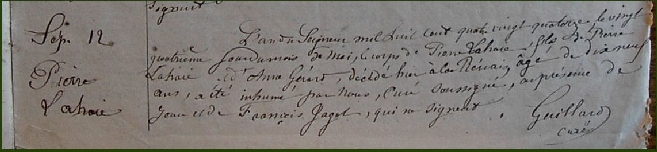 Sep. 12
Pierre
Lahaie
signent
L'an du Seigneur mil huit cent quatre vingt quatorze, le vingt
quatrième jour du mois, le corps de Pierre Lahaie, fils de Pierre
Lahaie et d'Anna Gérard, décédé hier à la, âgé de dix neuf
ans, a été inhumé par nous, Curé soussigné, en présence de
Jean et de François Jagot, qui ne signent.
Guillard
curé